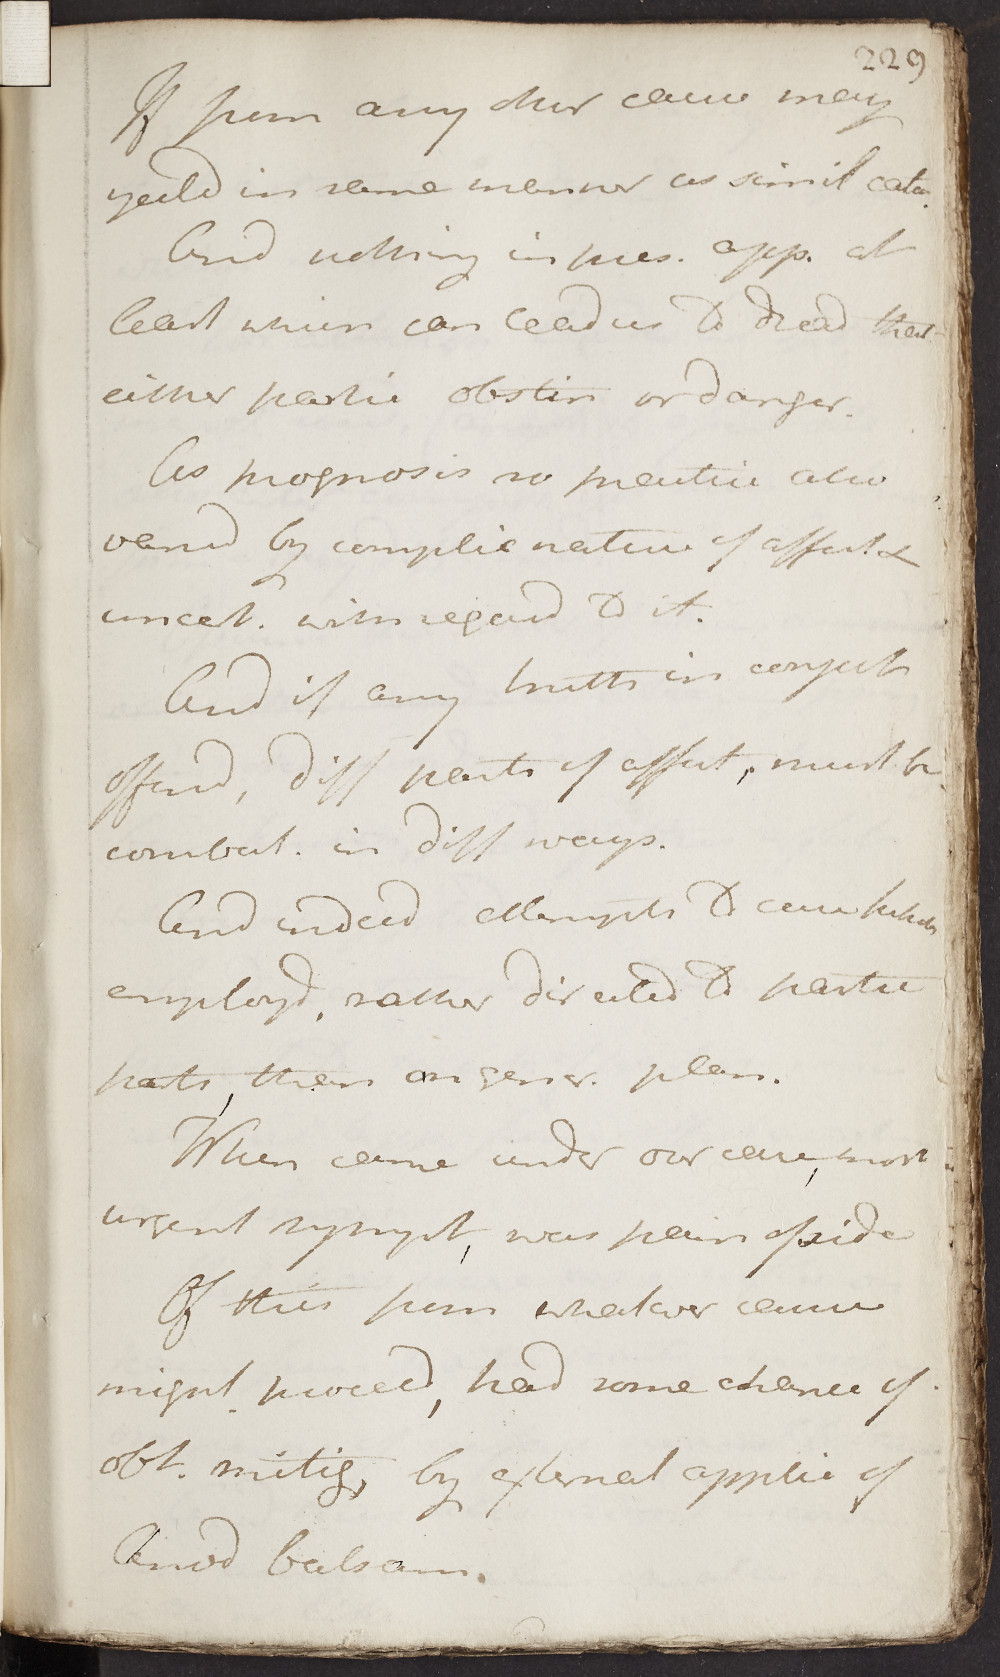 229
If from any other cause may
yeild in same manner as simil cata.
And nothing in pres. app. at
least which can lead us to dread that
either partic obstin or danger.
As prognosis so practice also
varied by complic nature of affect. &
uncert. with regard to it.
And if any truth in conject
offered, diff parts of affect, must be
combat. in diff ways.
And indeed attempts to cure
employd, rather directed to partic
parts, than on gener. plan.
When came under our care, most
urgent sympt, was pain of side
Of this from whatever cause
might proceed, had some chance of
obt. mitig, by external applic of
Anod balsam.